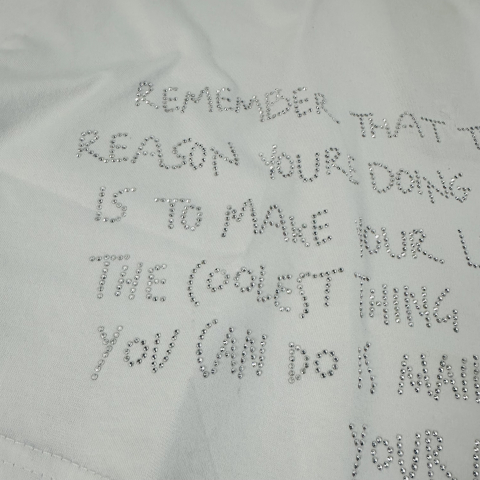 REMEMBER THAT T
REASON YOURE DOING
IS TO MAKE YOUR L
THE COOLEST THING
YOU CAN DO IS MA
YOUR